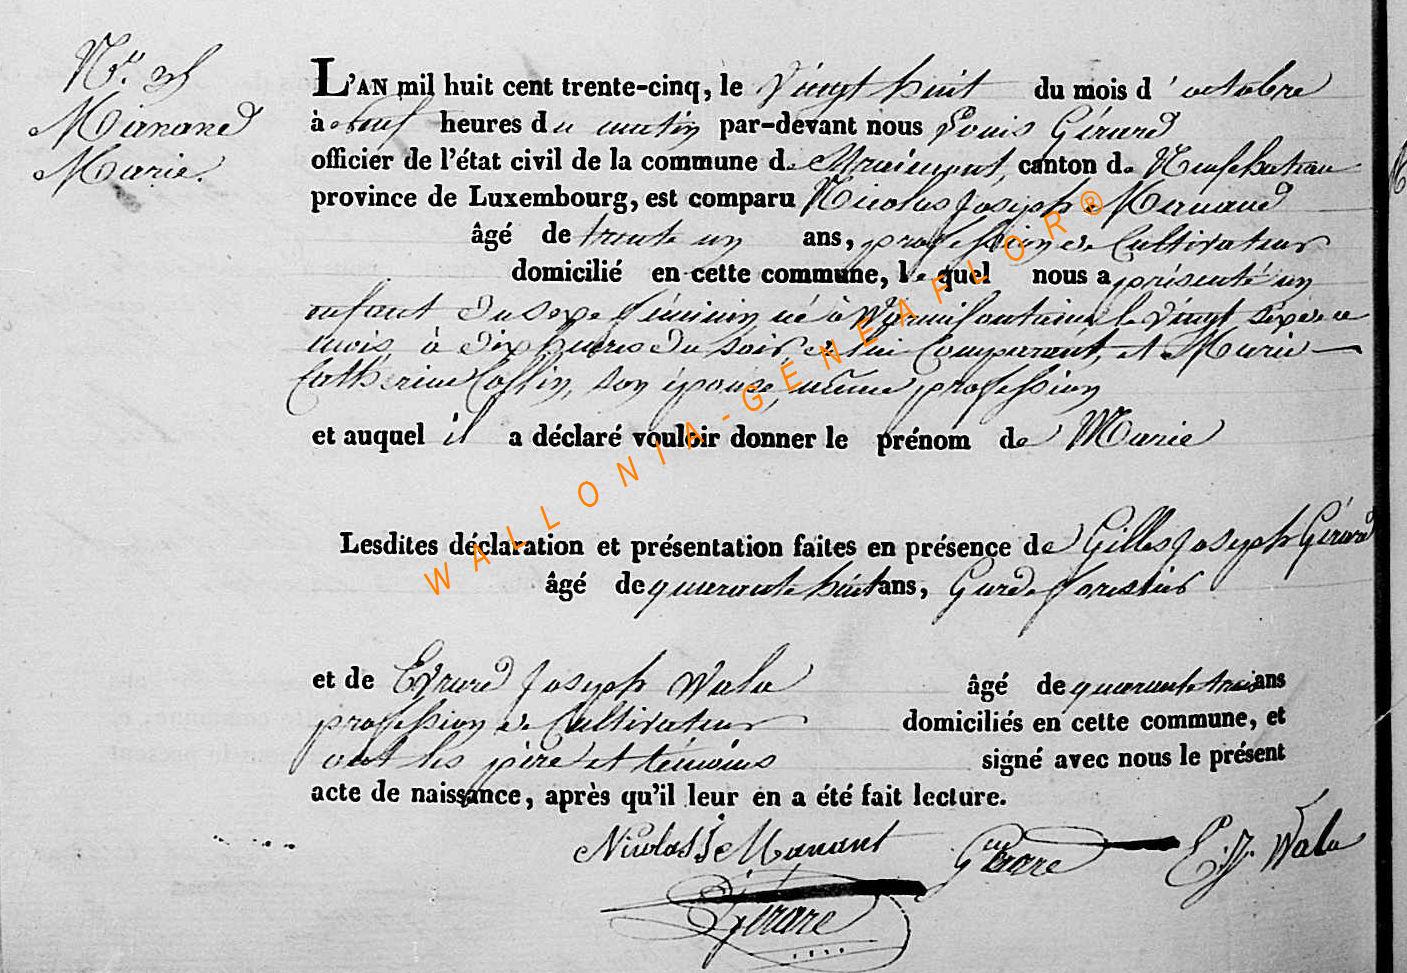 N°. 28
Manand
Marie.
L'AN mil huit cent trente-cinq, le Vingt huit du mois d'octobre
à neuf heures du matin par-devant nous Louis Gérard
officier de l'état civil de la commune de Straimont, canton de Neufchateau
province de Luxembourg, est comparu Nicolas Joseph Manand
âgé de trente un ans, profession de Cultivateur
domicilié en cette commune, lequel nous a présenté un
enfant du sexe féminin né à Warmifontaine le vingt six de ce
mois à dix heures du soir, de lui Comparant, et Marie
Catherine Collin, son épouse, même profession
et auquel il a déclaré vouloir donner le prénom de Marie
Lesdites déclaration et présentation faites en présence de Gilles Joseph Gérard
âgé de quarante huit ans, Garde forestier
et de Evrard Joseph Wala âgé de quarante trois ans
profession de Cultivateur domiciliés en cette commune, et
ont les père et témoins signé avec nous le présent
acte de naissance, après qu'il leur en a été fait lecture.
Nicolas J. Manant Gerard E. J. Wala
Gerard
WALLONIA-GÉNÉAFLOR®